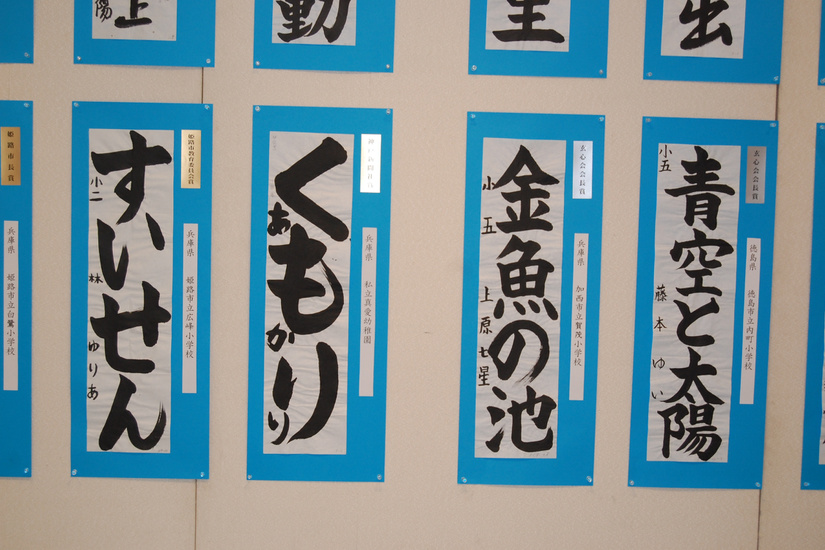 陽
上
動
出
姫路市長賞
姫路市立白鷺小学校
すいせん
小二
林
ゆりあ
姫路市教育委員会賞
兵庫県
姫路市立広峰小学校
くもり
あかり
兵庫県
私立真愛幼稚園
金魚の池
小五
上原七星
玄心会会長賞
兵庫県
加西市立賀茂小学校
青空と太陽
小五
藤本ゆい
玄心会会長賞
徳島県
徳島市立内町小学校